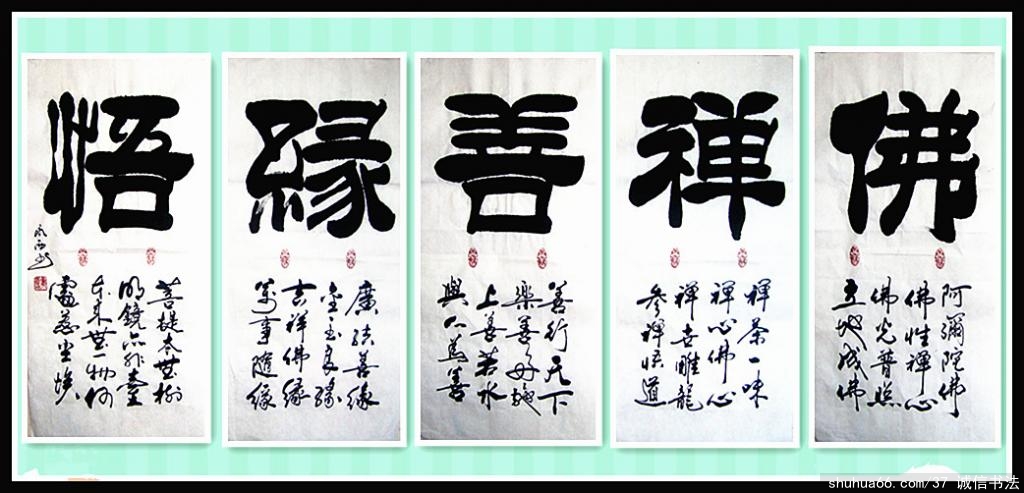 佛
阿彌陀佛
佛性禪心
佛光普照
立地成佛
禪
禪茶一味
禪心佛心
禪世雕龍
參禪悟道
善
善行天下
樂善好施
上善若水
與人為善
緣
廣結善緣
金玉良緣
吉祥佛緣
萬事隨緣
悟
菩提本無樹
明鏡亦非臺
本來無一物何
處惹尘埃
shuhuaoo.com/37 诚信书法